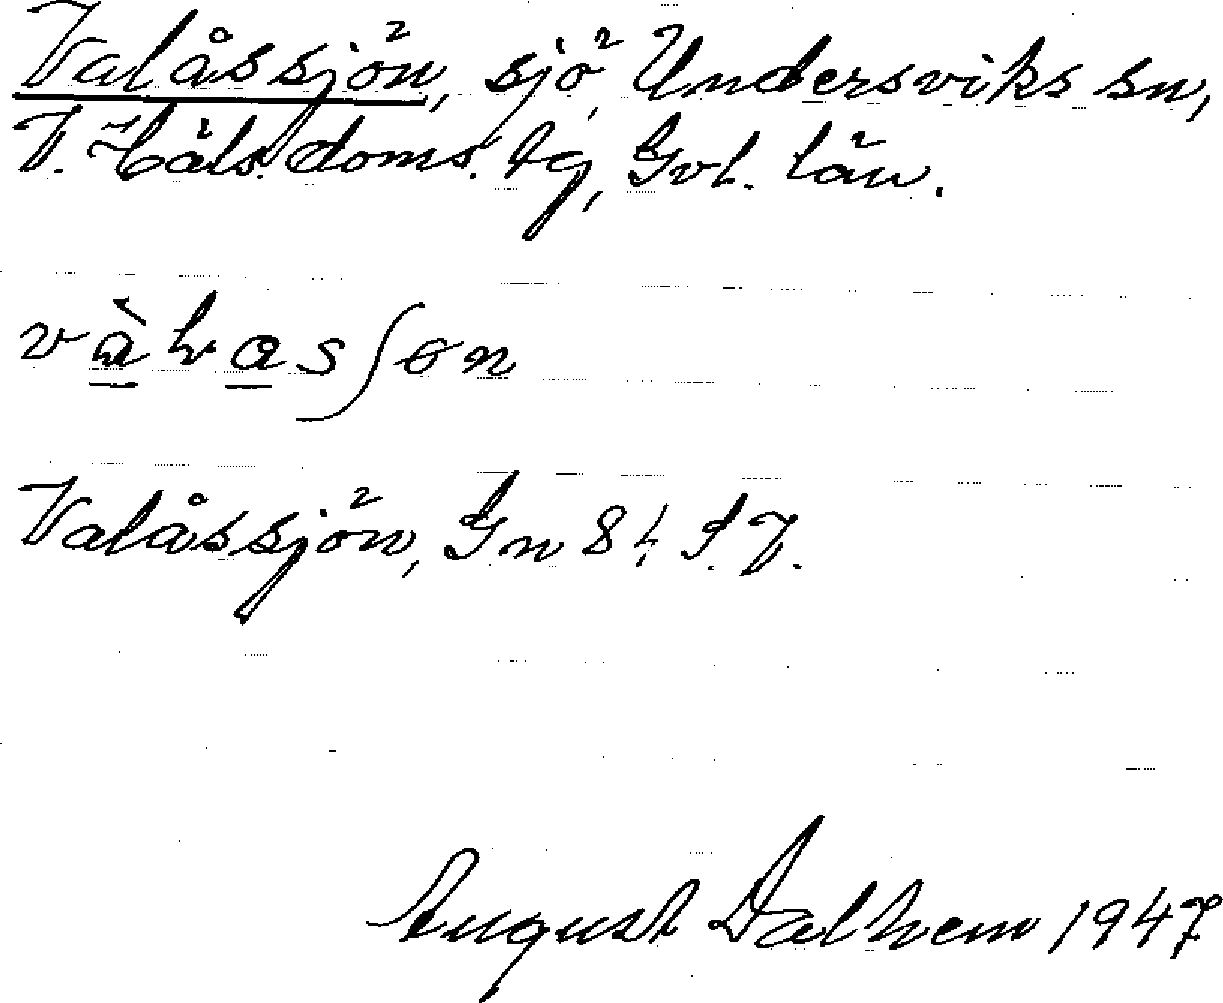 Valåssjön, sjö, Undersviks sn,
V. Häls. doms. tg, Gvl. län.
Valåssjön, Gn 84 S.V.
August Dalhem 1947